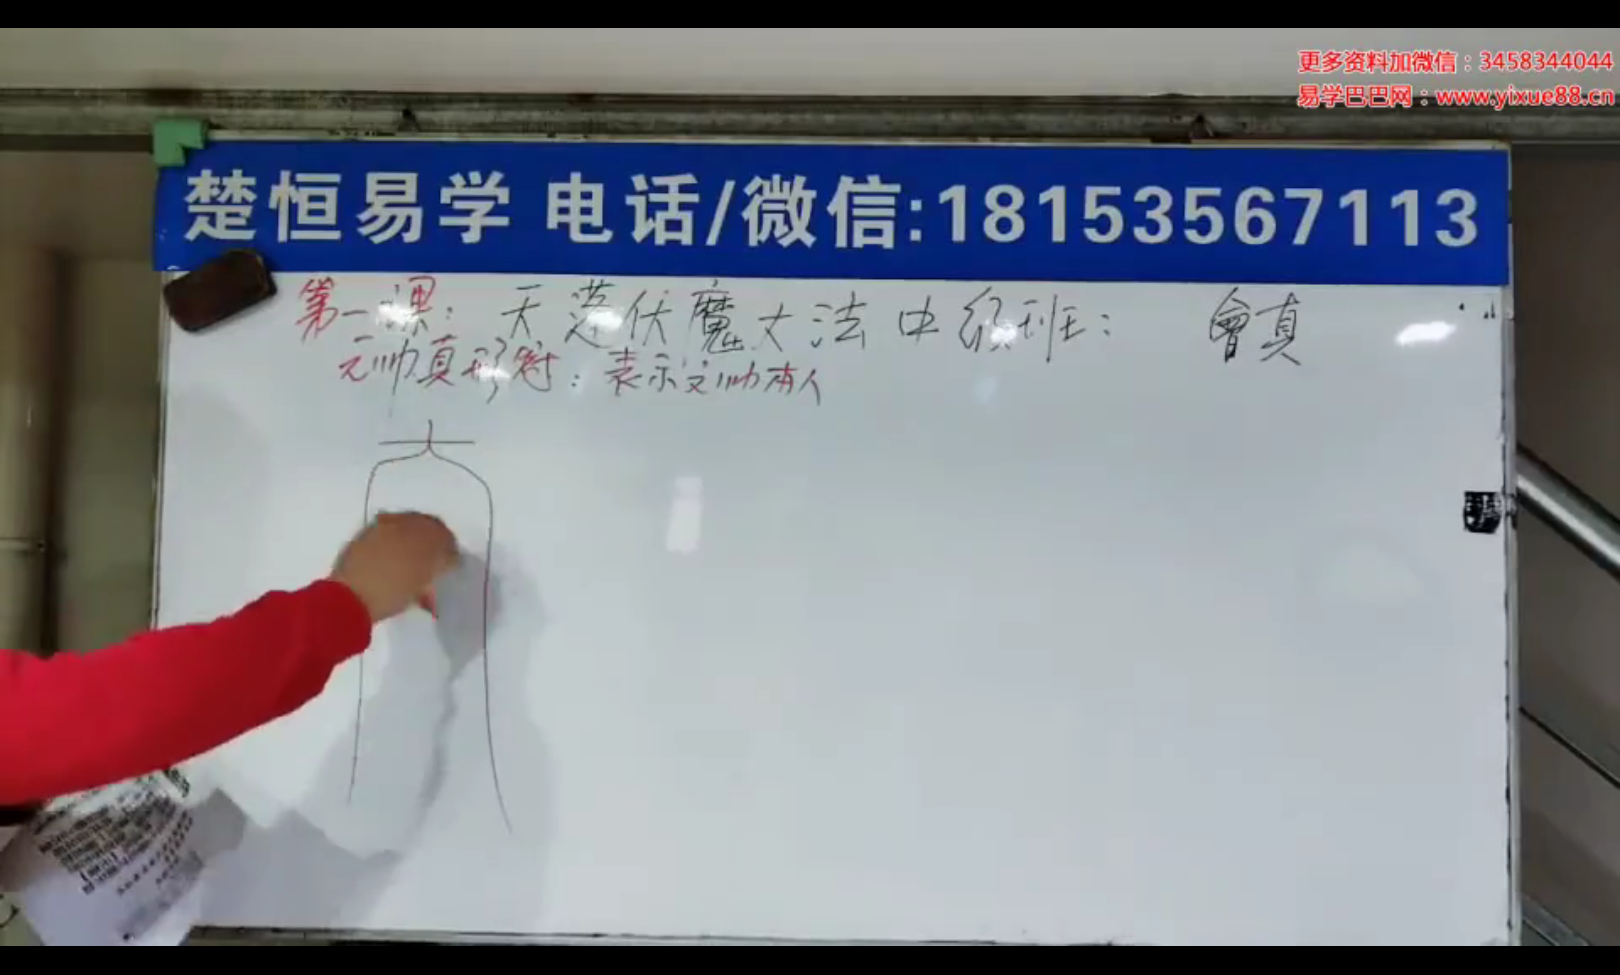 更多资料加微信：3458344044
易学巴巴网：www.yixue88.cn
楚恒易学 电话/微信:18153567113
第一课：天蓬伏魔大法中级班： 會真
元帅真形符：表示文帅本人